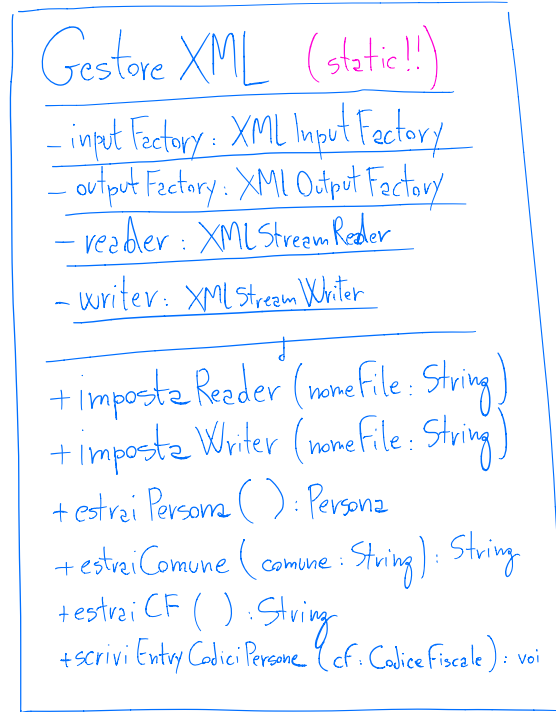 Gestore XML (static!!)
- inputFactory: XMLInputFactory
- outputFactory: XMLOutputFactory
- reader: XMLStreamReader
- writer: XMLStreamWriter
+ impostaReader (nomeFile: String)
+ impostaWriter (nomeFile: String)
+ estraiPersona ( ): Persona
+ estraiComune (comune: String): String
+ estraiCF ( ): String
+ scriviEntryCodiciPersone (cf: CodiceFiscale): voi